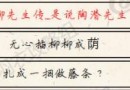 柳先生传是说陶潜先生
无心插柳柳成荫
扎成一捆做藤条?